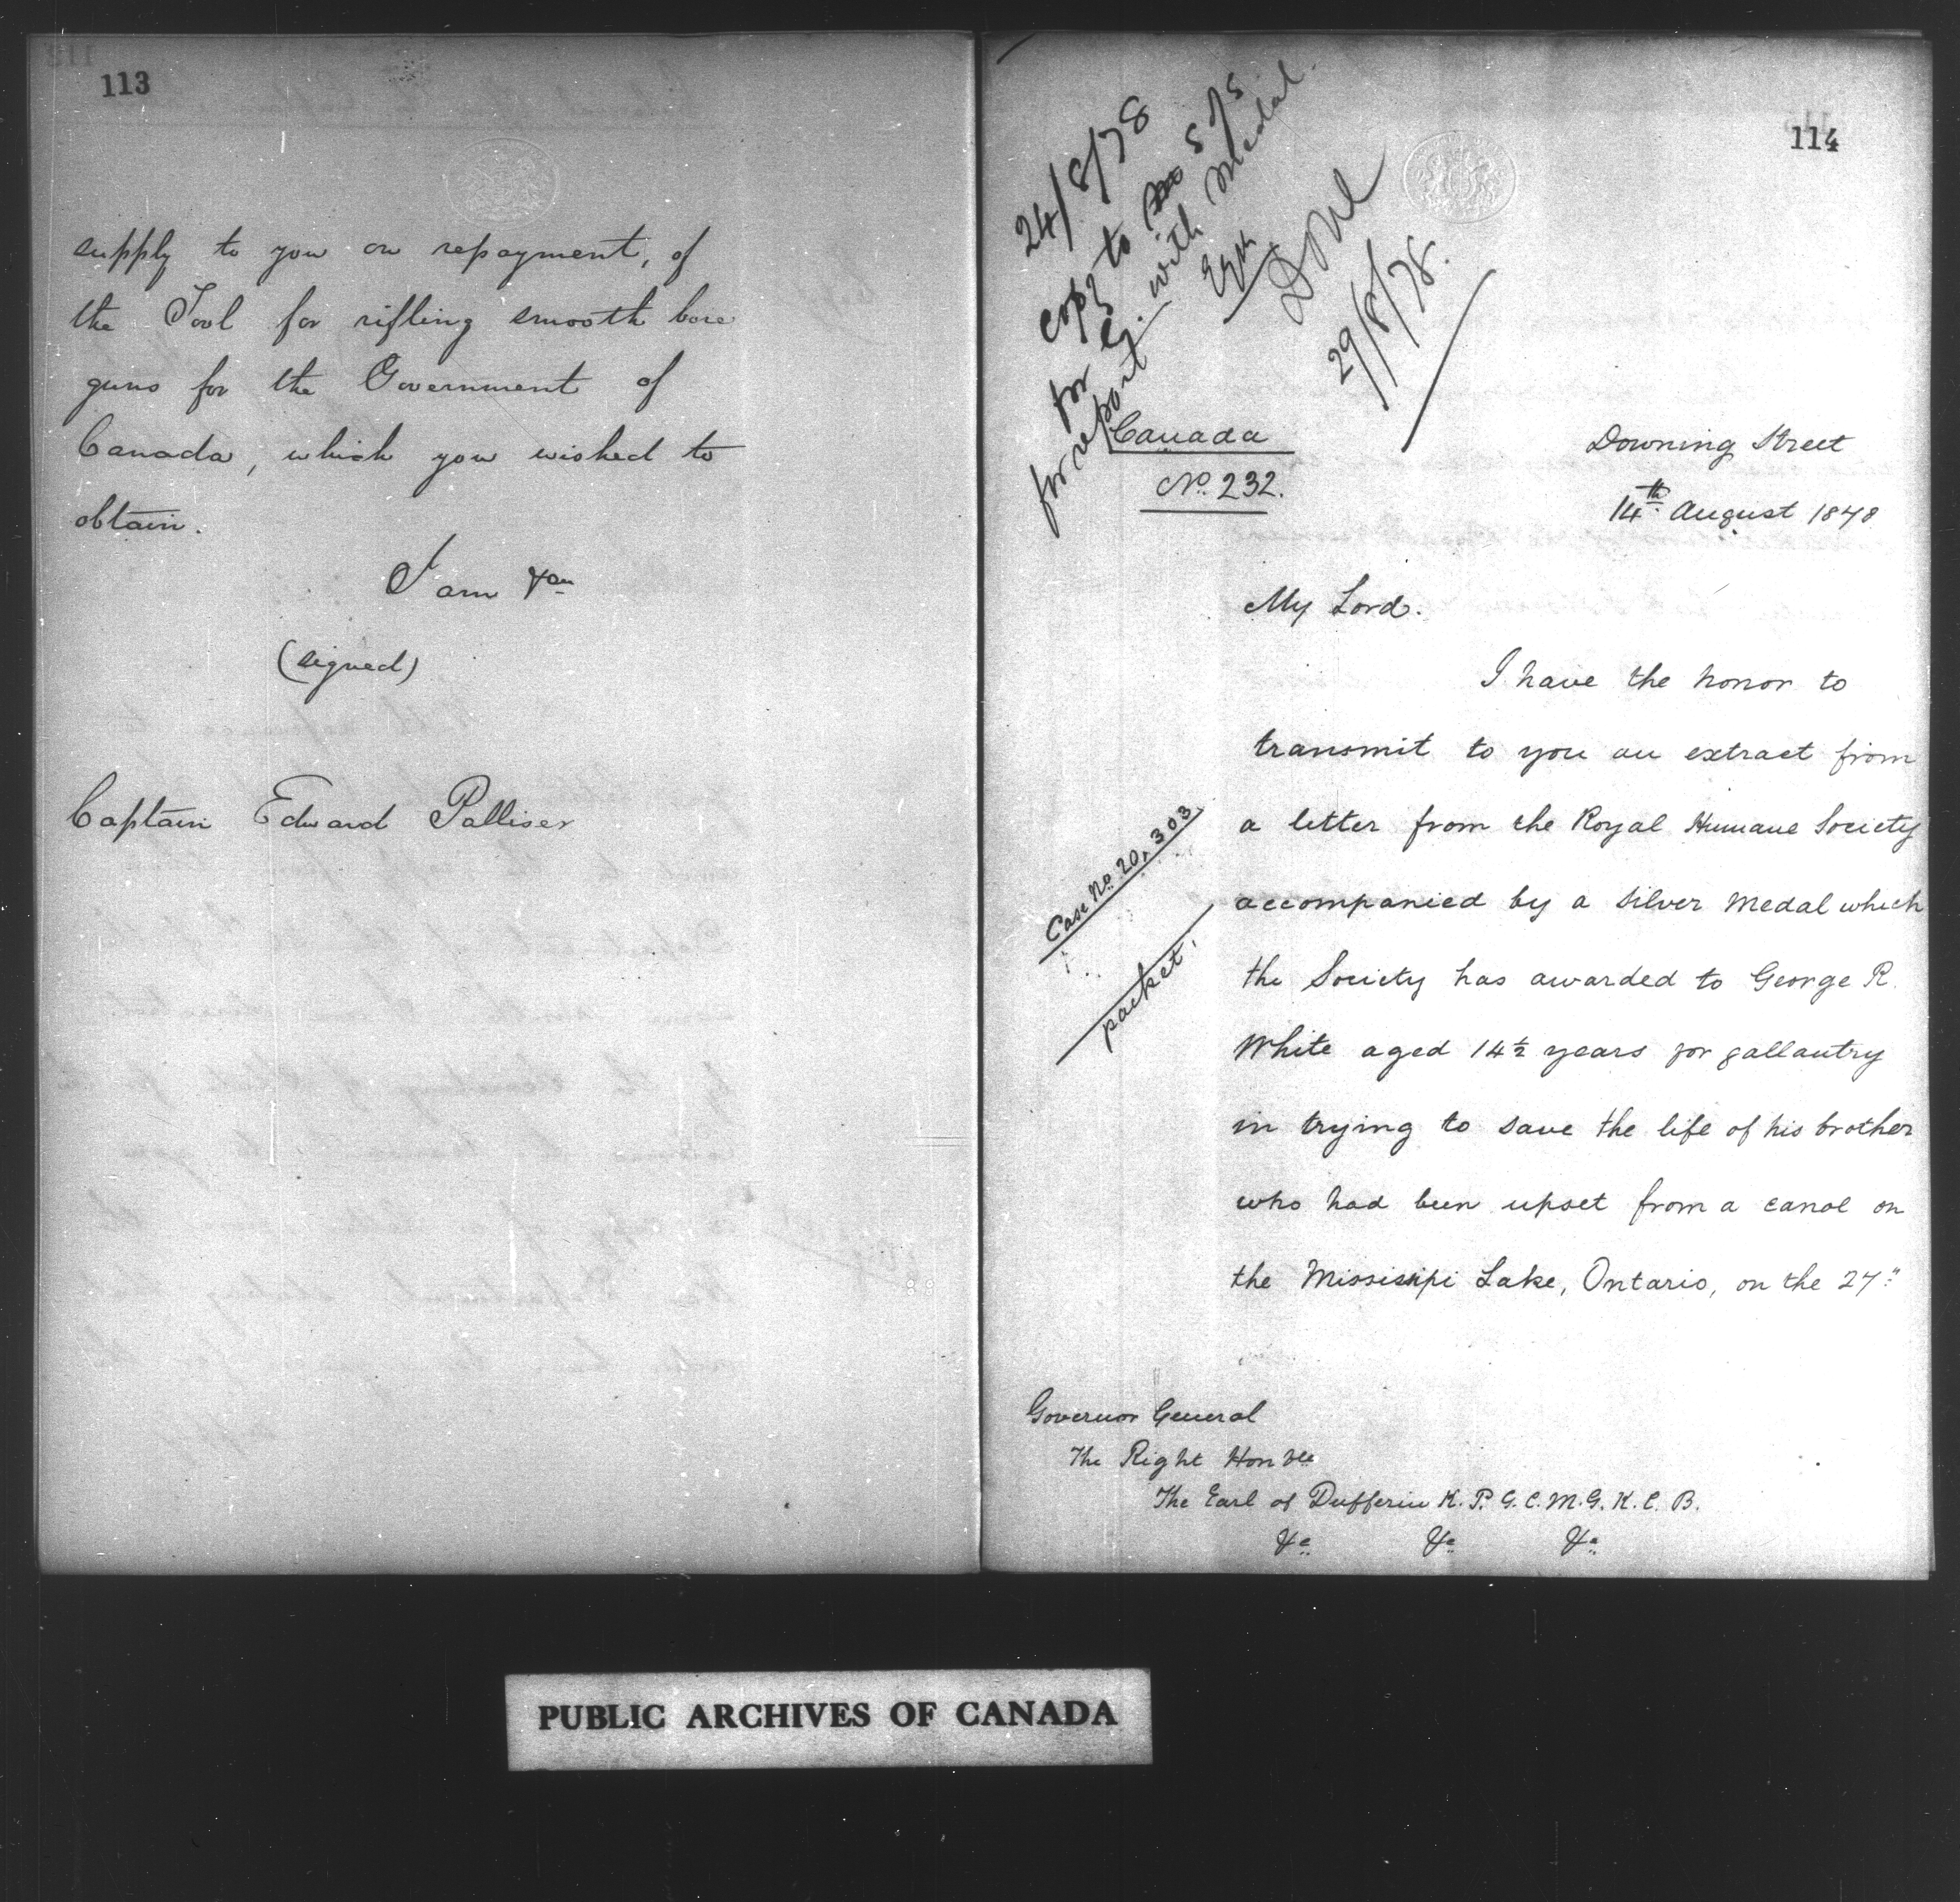 113
supply to you on repayment, of
the Tool for rifling smooth bore
guns for the Government of
Canada, which you wished to
obtain.
I am &c
(signed)
Captain Edward Palliser
114
24/8/78
copy to S of S
for G. with Medal.
for report
Done
29/8/78.
Canada
No. 232.
Downing Street
14th August 1878
My Lord.
I have the honor to
transmit to you an extract from
a letter from the Royal Humane Society
Case No. 20,303
accompanied by a silver Medal which
packet.
the Society has awarded to George R.
White aged 14½ years for gallantry
in trying to save the life of his brother
who had been upset from a canoe on
the Missisipi Lake, Ontario, on the 27"
Governor General
The Right Honble
The Earl of Dufferin K.P. G.C.M.G. K.C.B.
&c &c &c
PUBLIC ARCHIVES OF CANADA